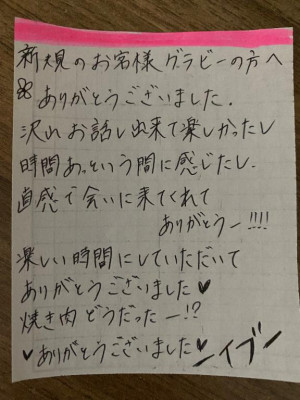 新規のお客様グラビーの方へ
ありがとうございました.
沢山お話し出来て楽しかったし
時間あっという間に感じたし.
直感で会いに来てくれて
ありがとうー!!!!
楽しい時間にしていただいて
ありがとうございました♥
焼き肉どうだったー!?
♥ありがとうございました♥
ーイブー